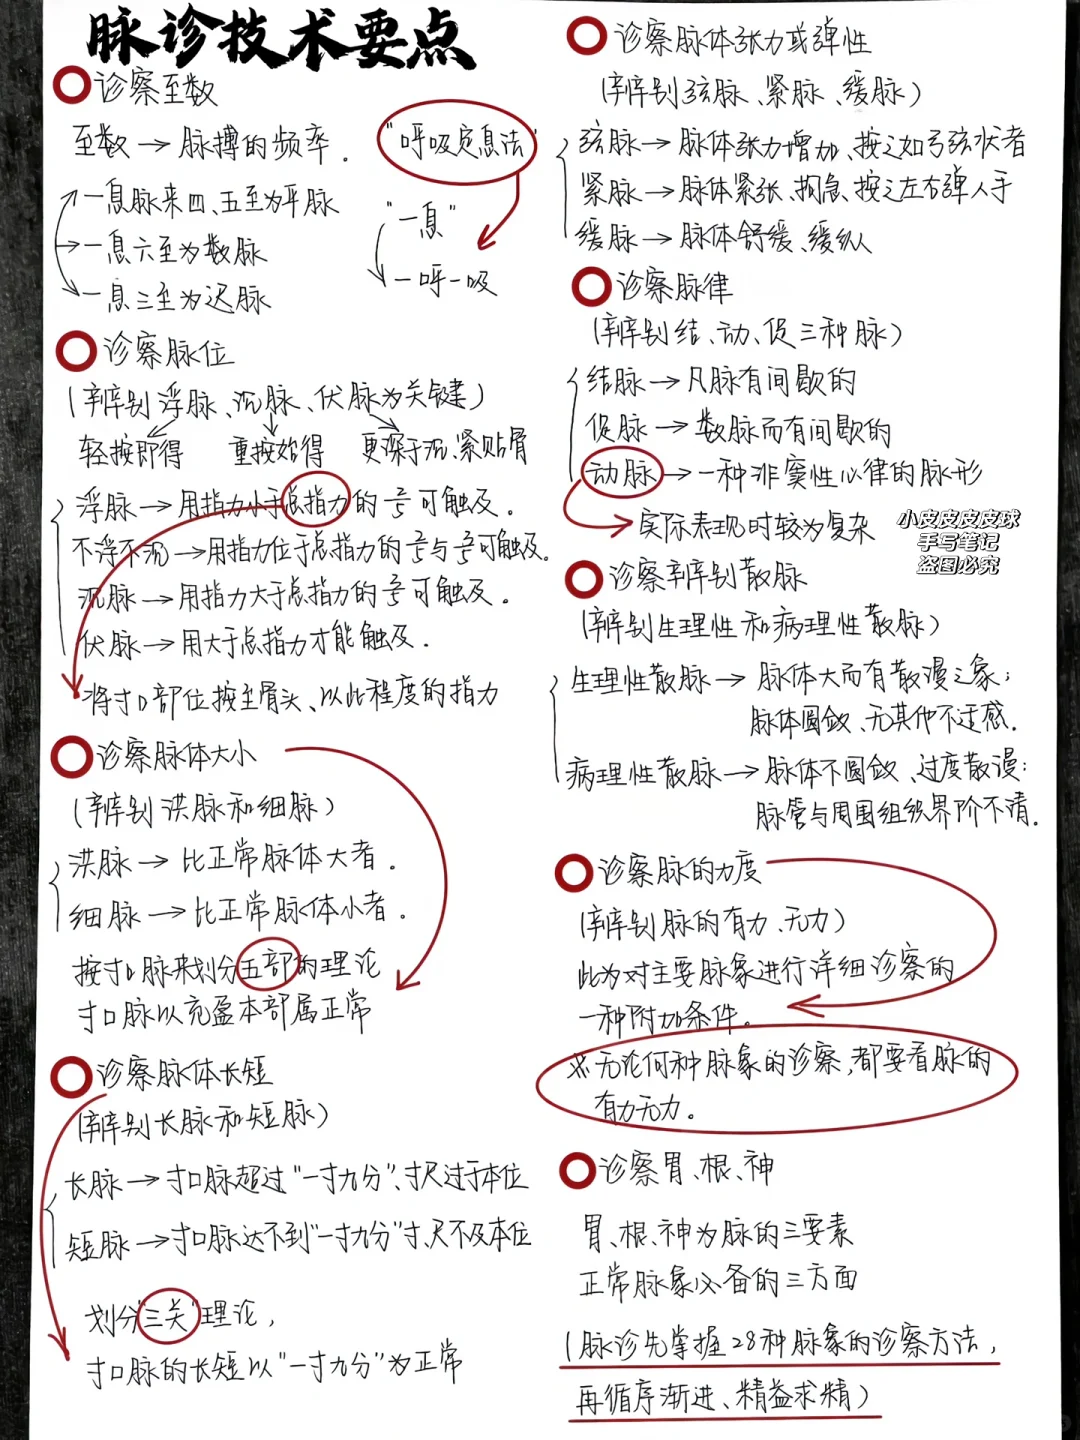 脉诊技术要点
诊察至数
至数→脉搏的频率.
"呼吸定息法"
一息脉来四、五至为平脉
一息六至为数脉
一息三至为迟脉
"一息"
一呼一吸
诊察脉位
(辨别浮脉、沉脉、伏脉为关键)
轻按即得 重按始得 更深于沉、紧贴骨
浮脉→用指力小于总指力的 可触及.
不浮不沉→用指力位于总指力的 与 可触及.
沉脉→用指力大于总指力的 可触及.
伏脉→用大于总指力才能触及.
将寸口部位按至骨头、以此程度的指力
诊察脉体大小
(辨别洪脉和细脉)
洪脉→比正常脉体大者.
细脉→比正常脉体小者.
按寸口脉来划分五部的理论
寸口脉以充盈本部属正常
诊察脉体长短
(辨别长脉和短脉)
长脉→寸口脉超过"一寸九分"、寸尺过于本位
短脉→寸口脉达不到"一寸九分"寸、尺不及本位
划分"三关"理论,
寸口脉的长短以"一寸九分"为正常
诊察脉体张力或弹性
(辨别弦脉、紧脉、缓脉)
弦脉→脉体张力增加、按之如弓弦状者
紧脉→脉体紧张、拘急、按之左右弹人手
缓脉→脉体舒缓、缓纵
诊察脉律
(辨别结、动、促三种脉)
结脉→凡脉有间歇的
促脉→数脉而有间歇的
动脉→一种非窦性心律的脉形
实际表现时较为复杂
小皮皮皮皮球
手写笔记
盗图必究
诊察辨别散脉
(辨别生理性和病理性散脉)
生理性散脉→脉体大而有散漫之象;
脉体圆敛、无其他不适感.
病理性散脉→脉体不圆敛、过度散漫;
脉管与周围组织界阶不清.
诊察脉的力度
(辨别脉的有力、无力)
此为对主要脉象进行详细诊察的
一种附加条件。
※无论何种脉象的诊察,都要看脉的
有力无力。
诊察胃、根、神
胃、根、神为脉的三要素
正常脉象必备的三方面
(脉诊先掌握28种脉象的诊察方法,
再循序渐进、精益求精)